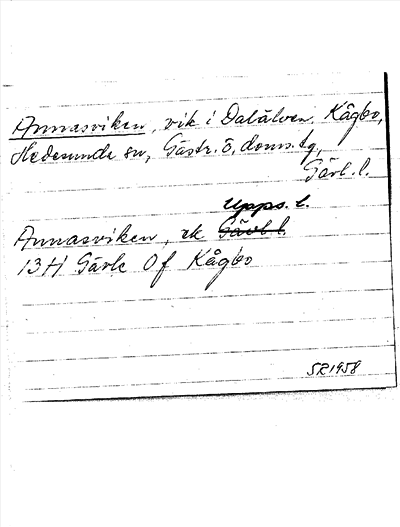 Annasviken, vik i Dalälven, Kågbo,
Hedesunda sn, Gästr. ö. doms. tg,
Gävl. l.
Upps. l.
Annasviken, ek Gävl. l.
13H Gävle 0f Kågbo
SR1958